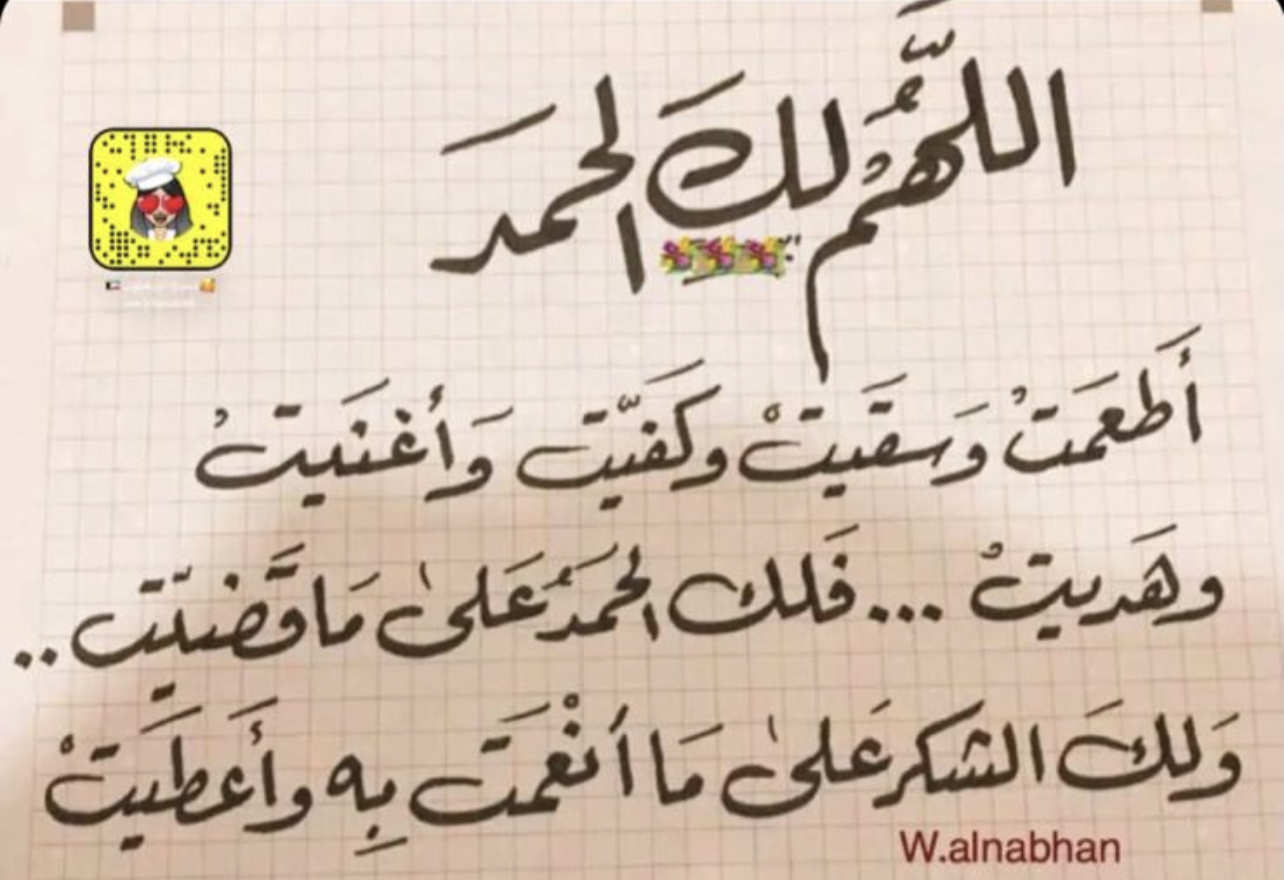 اللَّهُمَّ لكَ الحمدَ
أَطعَمَتُ وَسقَيتْ وكَفيّت وَأَغنَيتُ
وهَديتُ ... فَلك الحمَدُ عَلىٰ مَا قَضيّت ..
وَلكَ الشكر عَلىٰ مَا أنْعَمَت بِه وأَعطَيَتْ
W.alnabhan